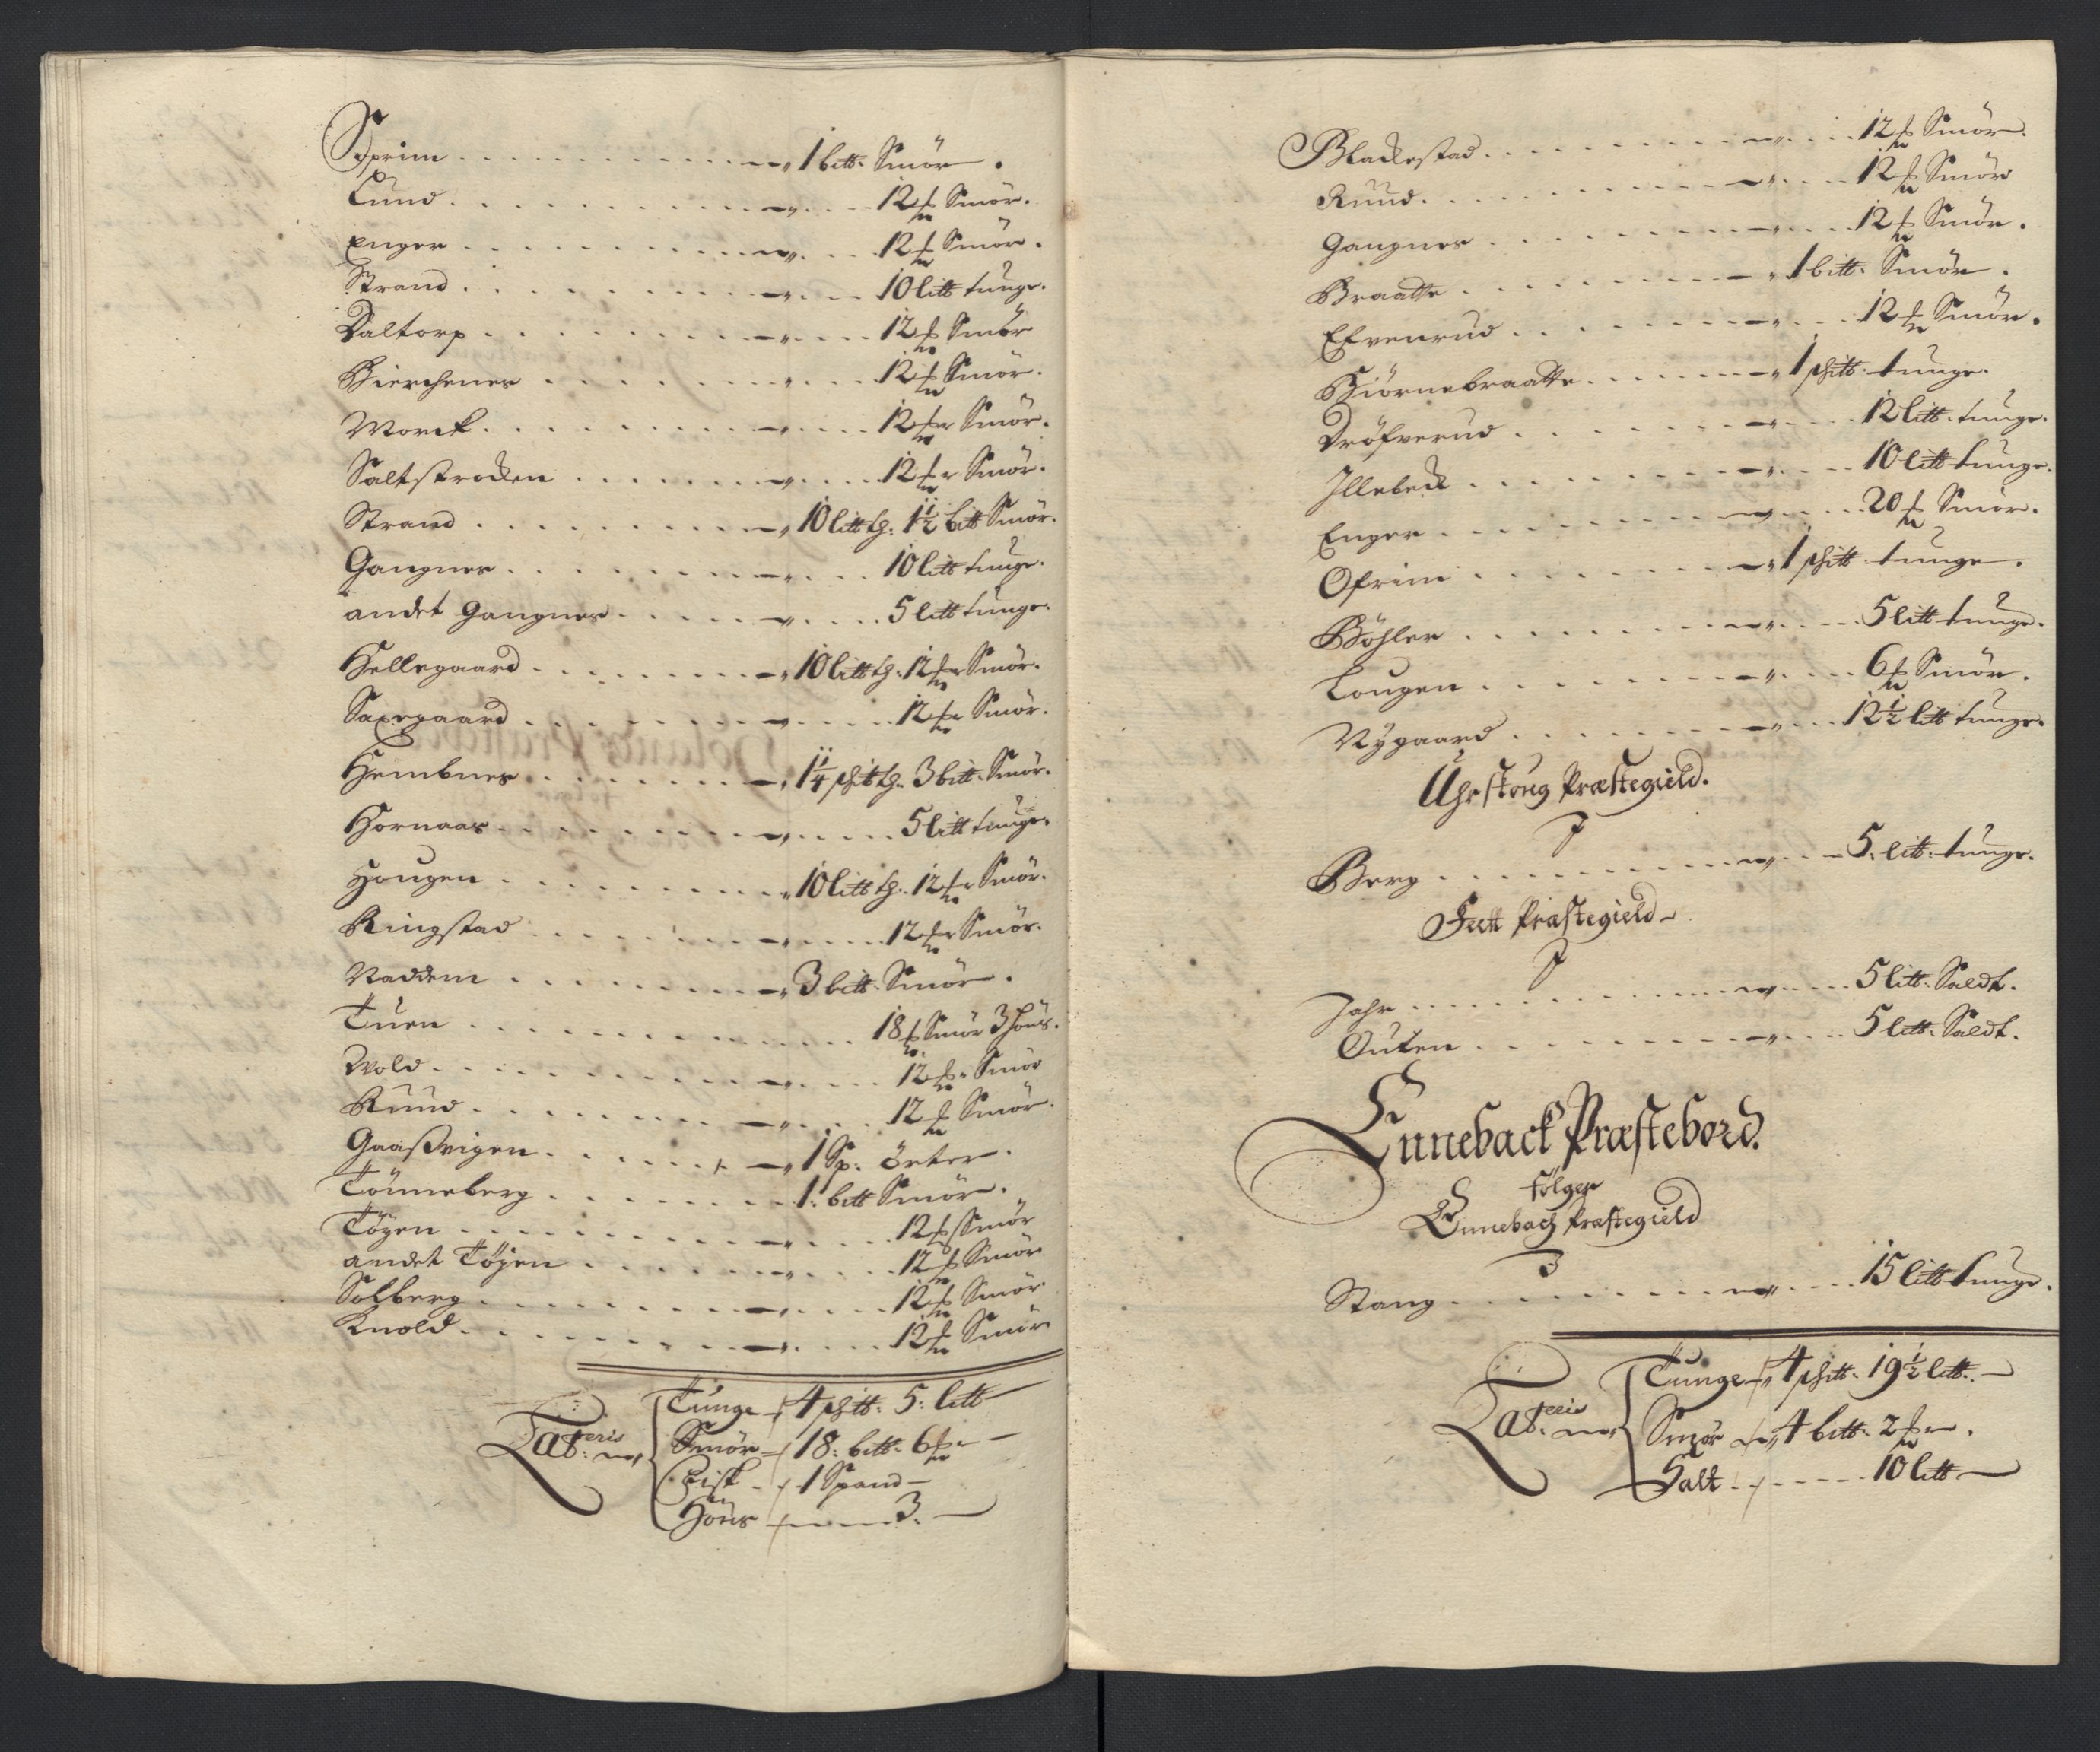 Sprim - 1 bitt: Smör.
Lund - 12 ℔ Smör.
Enger - 12 ℔ Smör.
Strand - 10 Litt tunge.
Daltorp - 12 ℔ Smör
Bierchenes - 12 ℔ Smör.
Morck - 12 ℔r Smör.
Saltstrocken - 12 ℔r Smör.
Strand - 10 Litt tg: 1½ bitt Smör.
Gangnes - 10 Litt tunge.
andet Gangnes - 5 Litt tunge.
Hellegaard - 10 Litt tg: 12 ℔r Smör.
Saxegaard - 12 ℔r Smör.
Hembnes - 1¼ sħitt tg: 3 bitt: Smör.
Hornaas - 5 Litt tunge.
Hougen - 10 Litt tg: 12 ℔r Smör.
Ringstad - 12 ℔r Smör.
Naddem - 3 bitt: Smör.
Tuen - 18 ℔ Smör 3 Höns.
Wold - 12 ℔r Smör
Ruud - 12 ℔ Smör.
Gaaßvigen - 1 Sp: örter.
Tönneberg - 1: bitt Smör.
Töyen - 12 ℔ Smör
andet Töyen - 12 ℔ Smör
Solberg - 12 ℔ Smör
Knold - 12 ℔ Smör
Lat:eris
Tunge - 4 sħitt: 5: Litt
Smör - 18: bitt: 6 ℔r
Fisk - 1 Spand
Höns - 3.
Blackestad - 12 ℔ Smör.
Ruud - 12 ℔ Smör
Gangnes - 12 ℔ Smör.
Braatte - 1 bitt: Smör.
Efvenrud - 12 ℔ Smör.
Biörnebraatte - 1 sħitt: tunge.
Dröfverud - 12 Litt: tunge.
Illebeck - 10 Litt tunge.
Enger - 20 ℔ Smör.
Ofrim - 1 sħitt tunge.
Böhler - 5 Litt tunge.
Lougen - 6 ℔ Smör.
Nygaard - 12½ Litt tunge.
Uhrskoug Præstegield.
Berg - 5. Litt: tunge.
Feett Præstegield
Jahr - 5 Litt: Saldt.
Outen - 5 Litt: Saldt.
Enneback Præstebord.
Følger
Ennebach Præstegield
Stang - 15 Litt tunge.
Lat:eris
Tunge - 4 sħitt: 19½ Litt:
Smör - 4 bitt: 2 ℔r.
Salt - 10 Litt